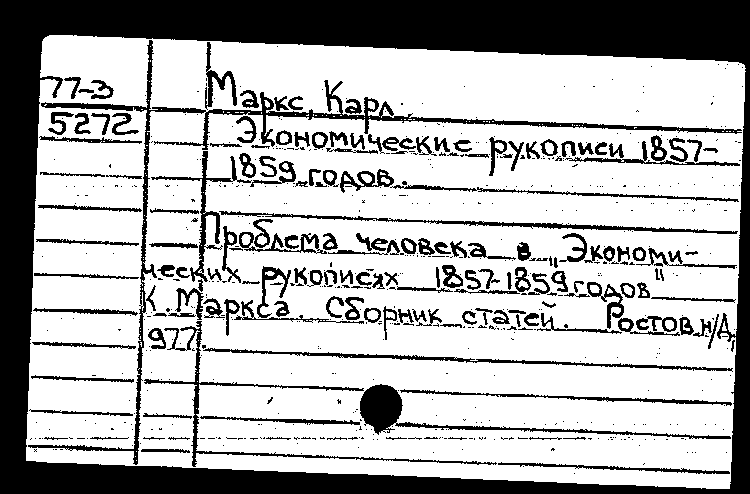 77-3
Маркс, Карл.
5272
Экономические рукописи 1857-
1859 годов.
Проблема человека в „Экономи-
ческих рукописях 1857-1859 годов"
К. Маркса. Сборник статей. Ростов н/Д,
977